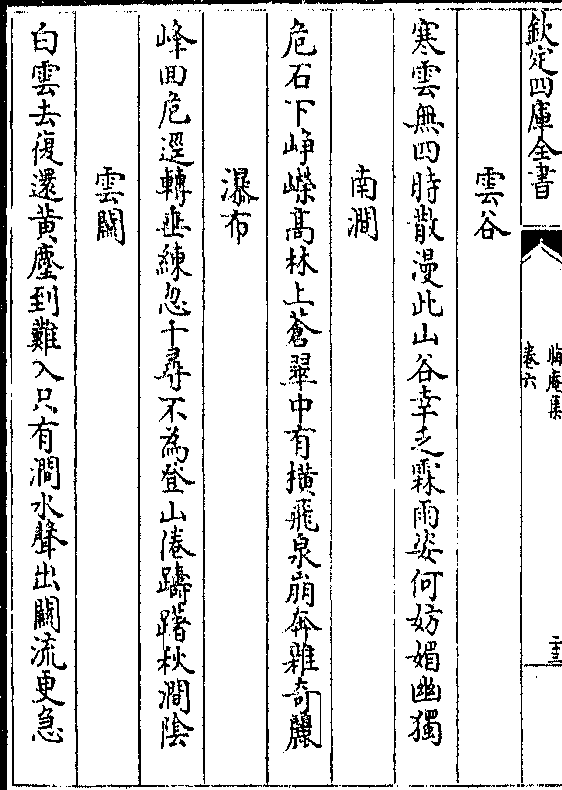 欽定四庫全書
晦庵集
卷六
雲谷
寒雲無四時散漫此山谷幸乏霖雨姿何妨媚幽獨
南澗
危石下崢嶸高林上蒼翠中有橫飛泉崩奔雜奇麗
瀑布
峰回危逕轉垂練忽千尋不為登山倦躊躇秋澗陰
雲關
白雲去復還黃塵到難入只有澗水聲出關流更急